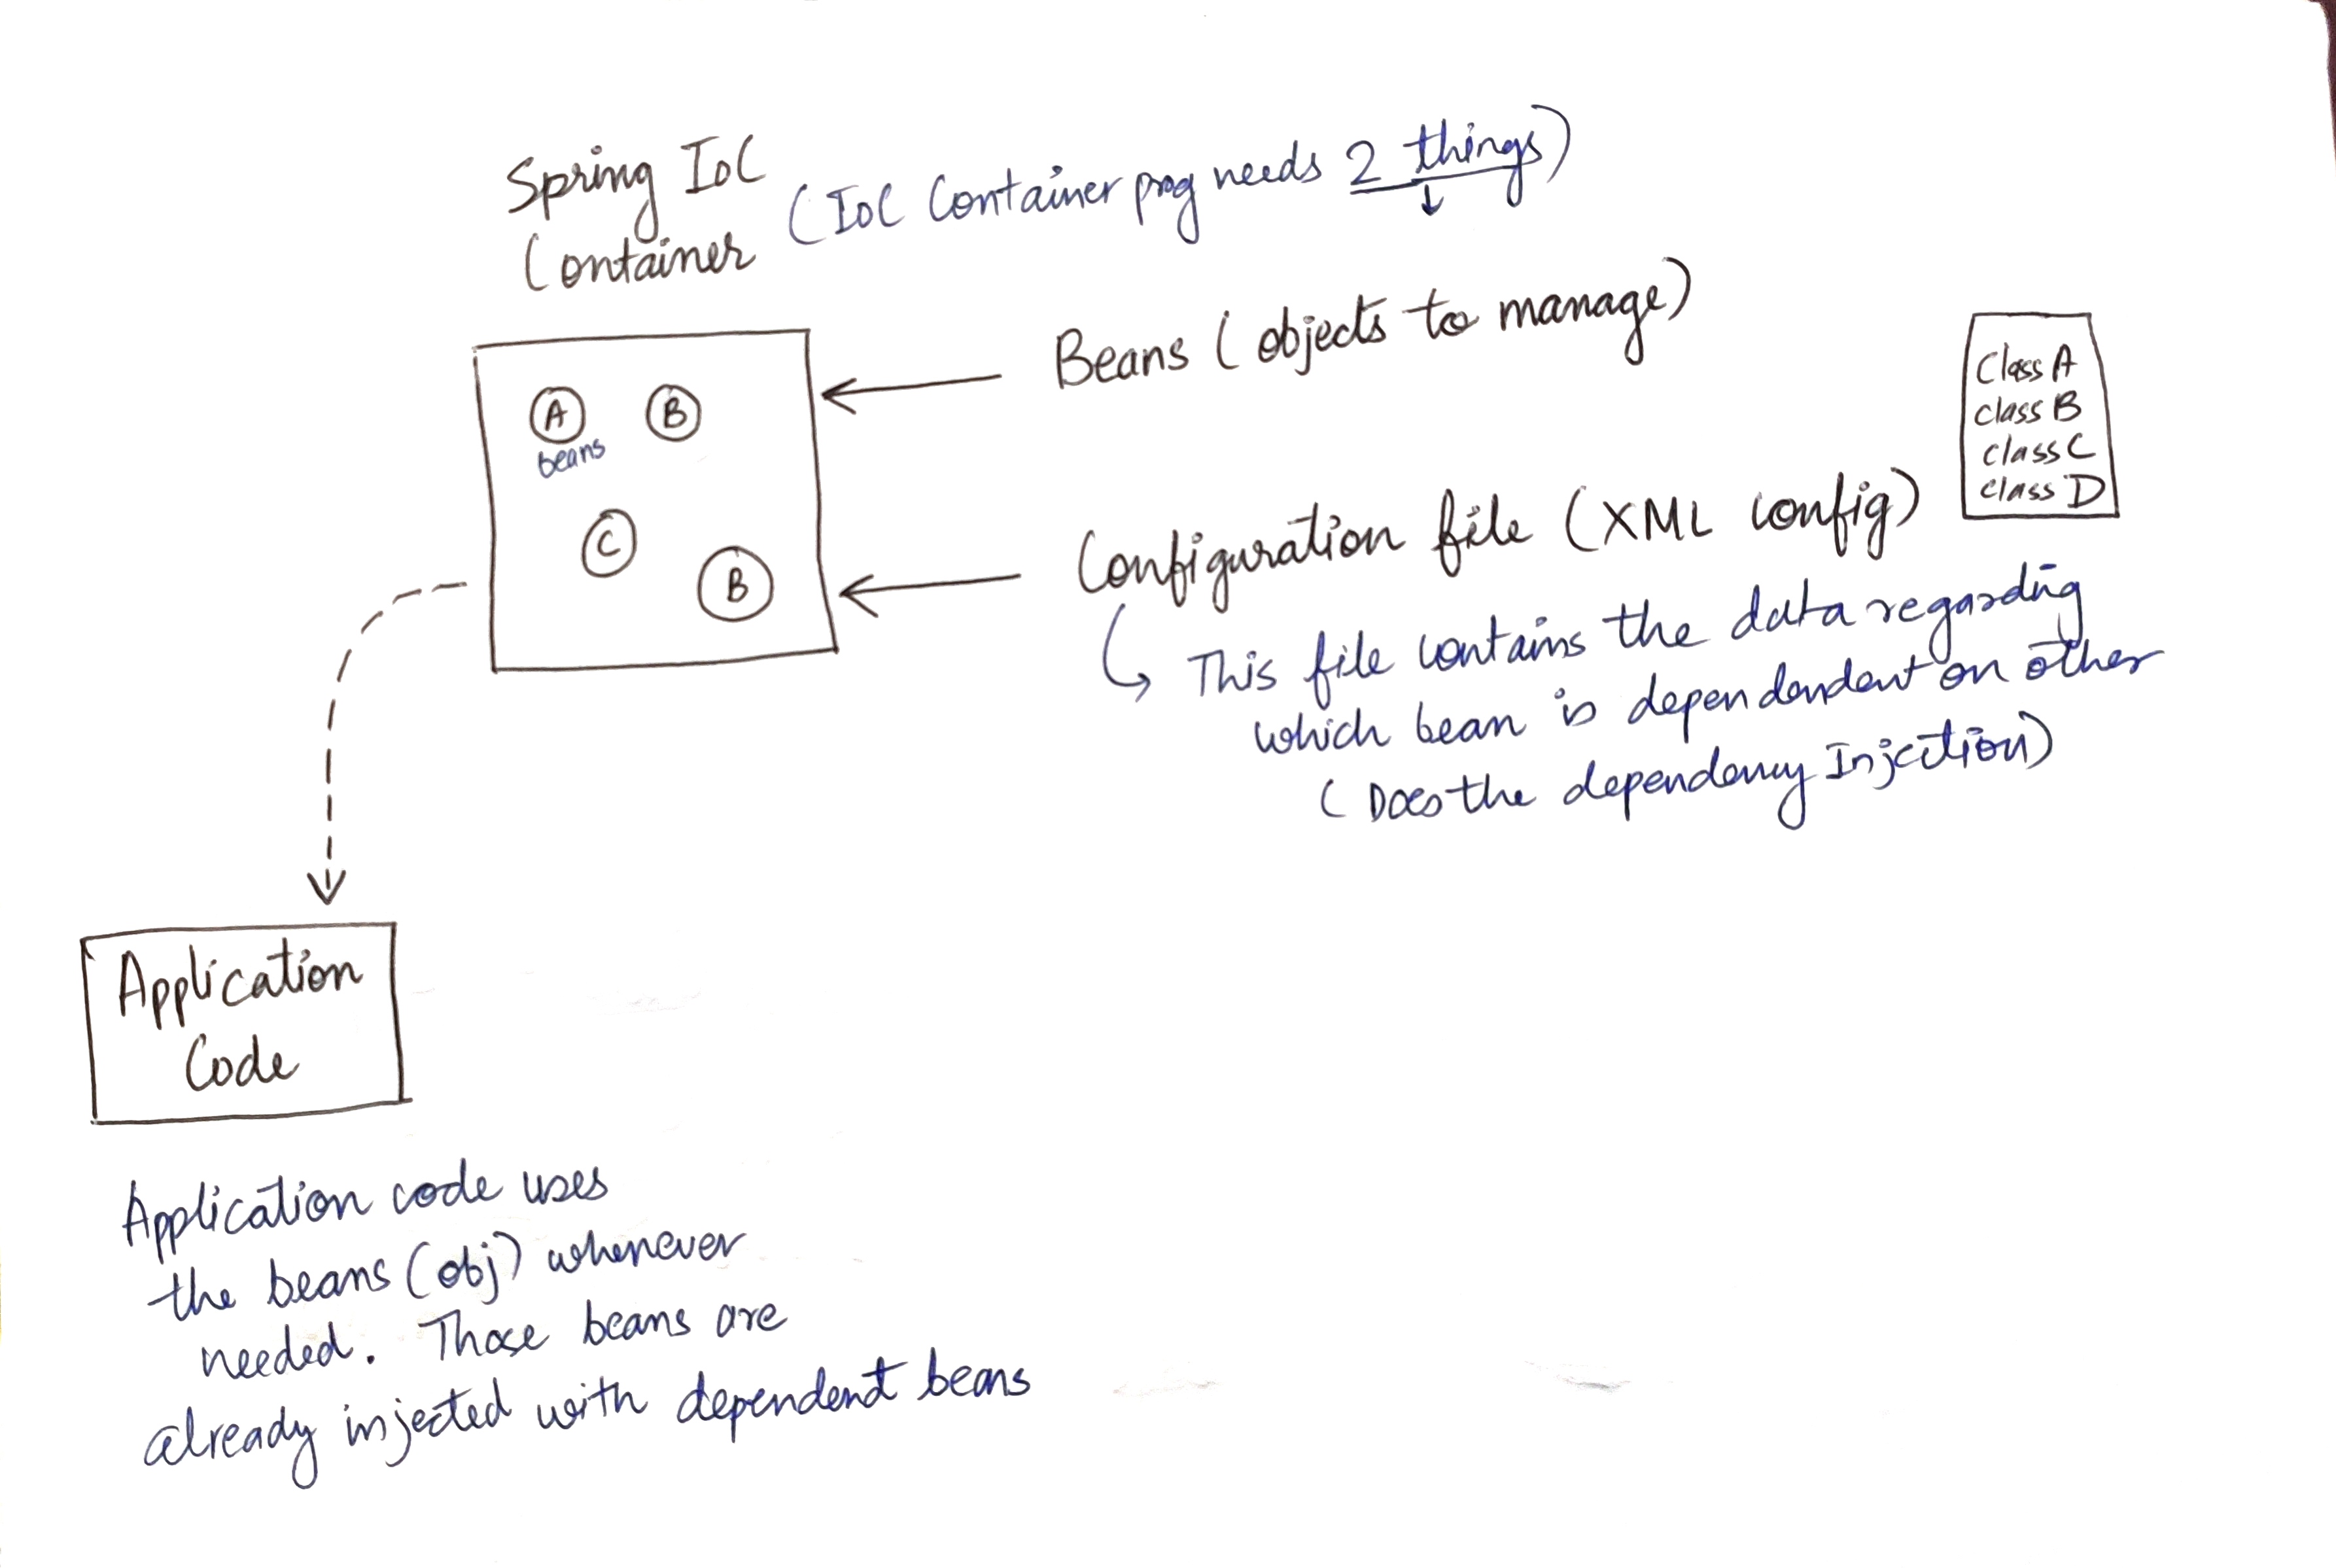 Spring IoC
Container
(IoC Container prog needs 2 things)
Beans (objects to manage)
Class A
class B
class C
class D
A
B
beans
C
B
Configuration file (XML config)
This file contains the data regarding
which bean is dependendent on other
(Does the dependency Injection)
Application
Code
Application code uses
the beans (obj) whenever
needed. Those beans are
already injected with dependent beans